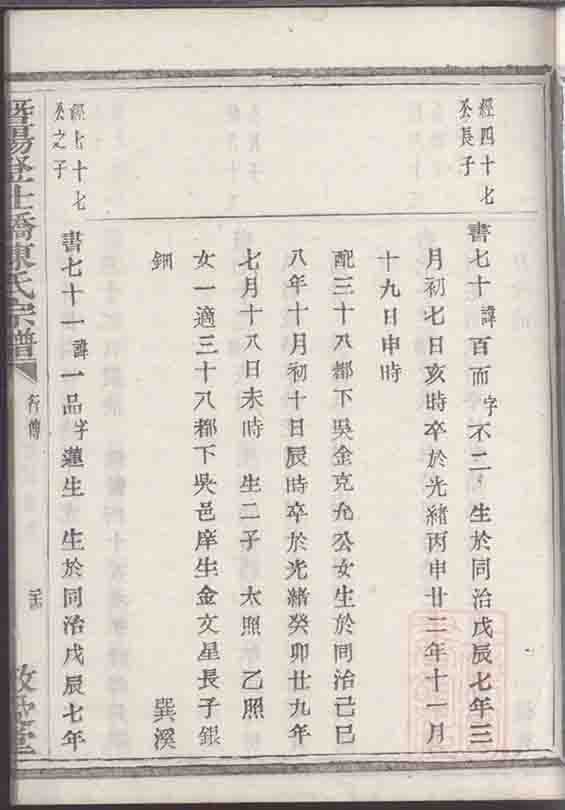 經四十七
公長子
書七十諱百而字不二 生於同治戊辰七年三
月初七日亥時卒於光緒丙申廿二年十一月
十九日申時
配三十八都下吳金克允公女生於同治己巳
八年十月初十日辰時卒於光緒癸卯廿九年
七月十八日未時 生二子 太照 乙照
女一適三十八都下吳邑庠生金文星長子銀
鈿 巽溪
經七十七
公之子
書七十一諱一品字蓮生 生於同治戊辰七年
暨陽登仕橋陳氏宗譜 行傳